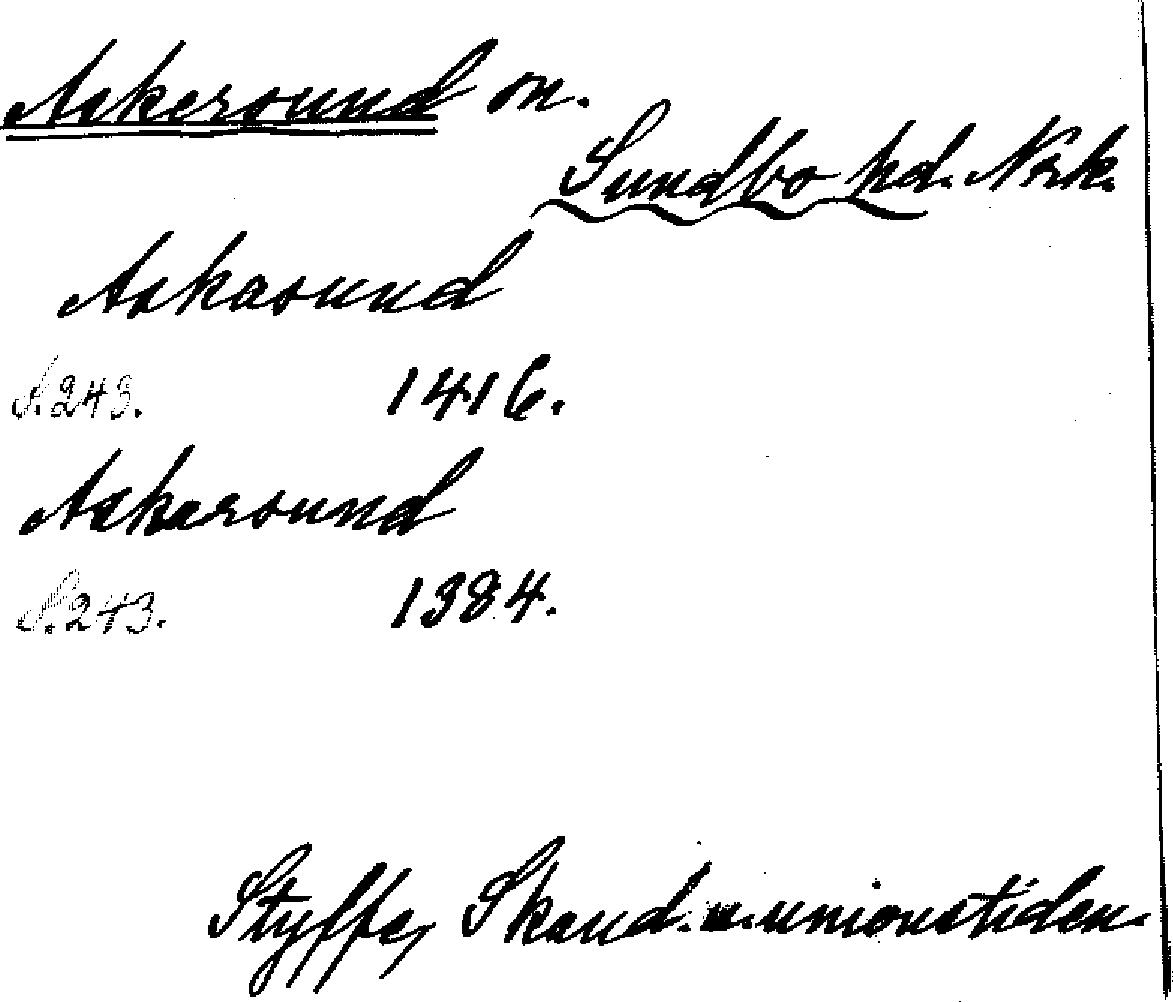 Askersund sn.
Sundbo hd. Närk.
Askasund
S. 243. 1416.
Askarsund
S. 243. 1384.
Styffe, Skand. u. unionstiden.